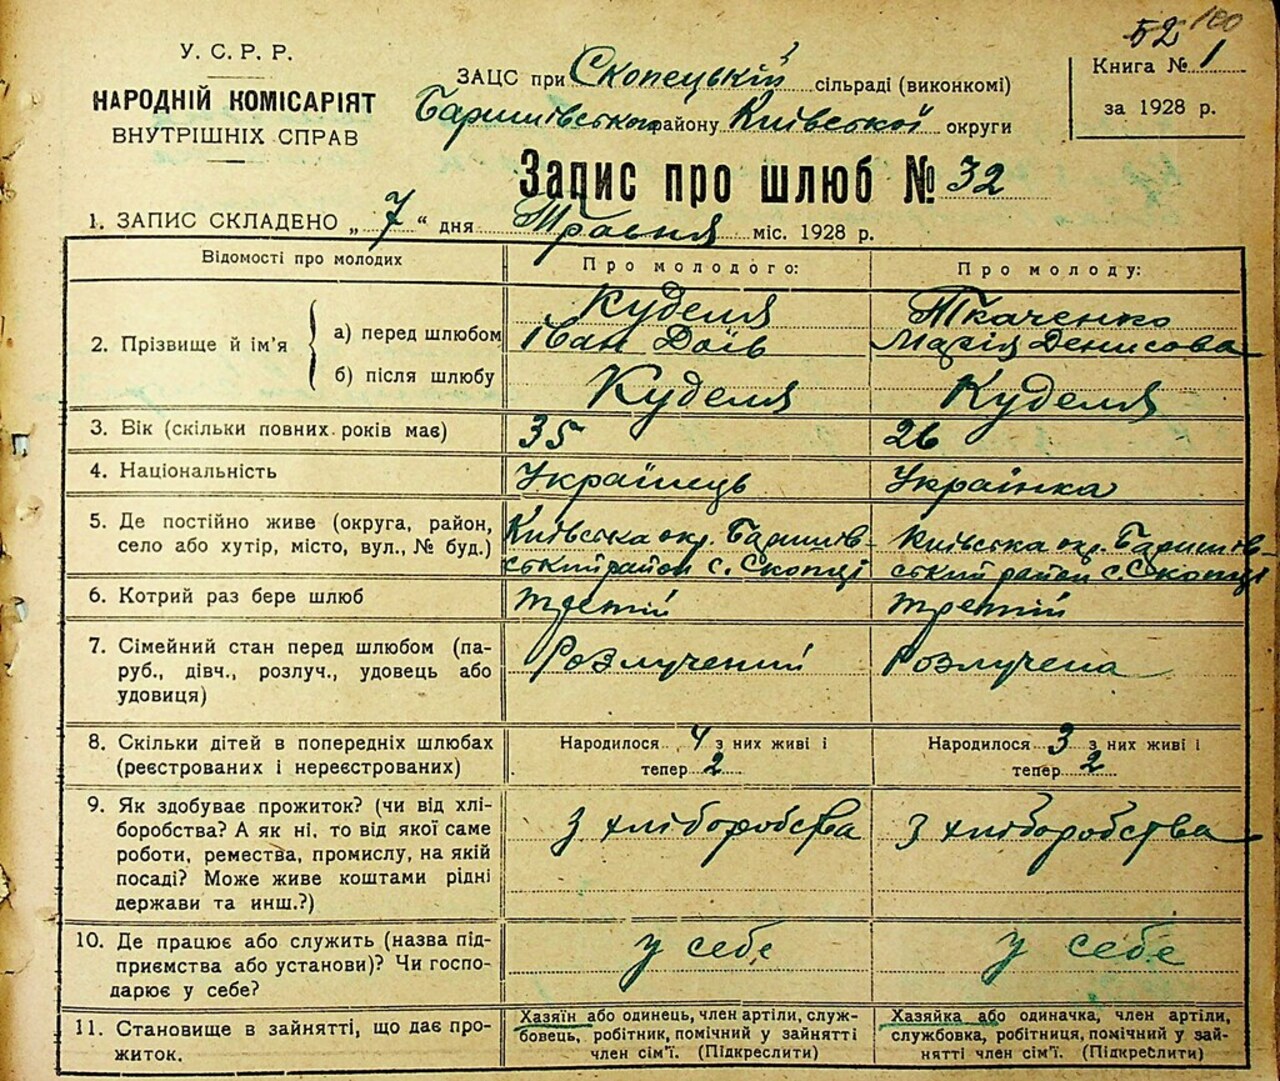 52 100
У. С. Р. Р.
НАРОДНІЙ КОМІСАРІЯТ
ВНУТРІШНІХ СПРАВ
ЗАЦС при Скопецькій сільраді (виконкомі)
Баришівського району Київської округи
Книга № 1
за 1928 р.
Запис про шлюб № 32
1. ЗАПИС СКЛАДЕНО „ 7 “ дня Травня міс. 1928 р.
Відомості про молодих
Про молодого:
Про молоду:
2. Прізвище й ім'я
а) перед шлюбом
б) після шлюбу
Куделя
Іван
Куделя
Ткаченко
Марія Денисова
Куделя
3. Вік (скільки повних років має)
35
26
4. Національність
Українець
Українка
5. Де постійно живе (округа, район,
село або хутір, місто, вул., № буд.)
Київська окр. Баришів-
ський район с. Скопці
Київська окр. Баришів-
ський район с. Скопці
6. Котрий раз бере шлюб
третій
третій
7. Сімейний стан перед шлюбом (па-
руб., дівч., розлуч., удовець або
удовиця)
Розлучений
Розлучена
8. Скільки дітей в попередніх шлюбах
(реєстрованих і нереєстрованих)
Народилося 4 з них живі і
тепер 2
Народилося 3 з них живі і
тепер 2
9. Як здобуває прожиток? (чи від хлі-
боробства? А як ні, то від якої саме
роботи, ремества, промислу, на якій
посаді? Може живе коштами рідні
держави та инш.?)
З хліборобства
З хліборобства
10. Де працює або служить (назва під-
приємства або установи)? Чи госпо-
дарює у себе?
у себе
у себе
11. Становище в зайнятті, що дає про-
житок.
Хазяїн або одинець, член артіли, служ-
бовець, робітник, помічний у зайнятті
член сім'ї. (Підкреслити)
Хазяйка або одиначка, член артіли,
службовка, робітниця, помічний у зай-
нятті член сім'ї. (Підкреслити)